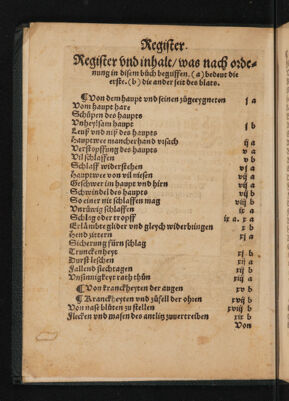 Register.
Register vnd inhalt/ was nach orde-
nung in disem bůch begriffen. (a) bedeut die
erste. (b) die ander seit des blats.
¶Von dem haupt vnd seinen zůgeeygneten j a
Vom haupt hare
Schůpen des haupts
Vnheylsam haupt j b
Leuß vnd niß des haupts
Hauptwee mancherhand vrsach ij a
Verstopffung des haupts v a
Vil schlaffen v b
Schlaff widerstehen vj a
Hauptwee von vil niesen vij a
Beschwer im haupt vnd hirn vij a
Schwindel des haupts vij b
So einer nit schlaffen mag viij b
Vnrůwig schlaffen ix a
Schlag oder tropff ix a. x a
Erlämbte glider vnd gleych widerbringen x b
Hend zittern xj a
Sicherung fürn schlag
Trunckenheyt xj b
Durst leschen xij a
Fallend siechtagen xij b
Vnsinnigkeyt rath thůn xiij a
¶Von kranckheyten der augen xv b
¶Kranckheyten vnd zůfell der ohren xvij b
Von nase blůten zu stellen xviij b
Flecken vnd masen des antlitz zuuertreiben xix b
Von